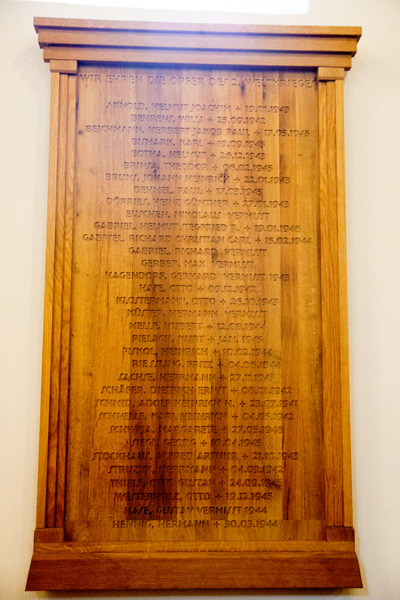 WIR EHREN DIE OPFER DES 2. WELTKRIEGES
ARNOLD, HELMUT JOACHIM + 19.01.1943
BEHRENS, WILLI + 25.09.1942
BEICHMANN, HERBERT JAKOB PAUL + 17.03.1945
BISMARK, KARL + 19.09.1945
BOTHA, HELMUT + 26.12.1943
BRINSA, THEODOR + 06.02.1945
BRUNS, JOHANN HEINRICH + 22.01.1943
DEHMEL, PAUL + 17.03.1945
DÖRRIES, HEINZ GÜNTHER + 27.01.1943
EUSCHEN, NIKOLAUS VERMISST
GABRIEL, HELMUT SIEGFRIED R. + 19.01.1946
GABRIEL, RICHARD CHRISTIAN CARL + 15.02.1944
GABRIEL, RICHARD VERMISST
GERBER, MAX VERMISST
HAGENDORF, GERHARD VERMISST 1943
HAYE, OTTO + 09.12.1942
KLOSTERMANN, OTTO + 26.10.1943
KÜSTER, HERMANN VERMISST
MELLE, HUBERT + 12.08.1944
PIELACH, KURT + JAN. 1945
PISKOL, HEINRICH + 10.02.1944
RIESSLING, FRITZ + 04.05.1944
SACHSE, HERRMANN + 27.11.1945
SCHÄFER, DIETRICH ERNST + 08.01.1942
SCHMID, ADOLF HEINRICH H. + 23.07.1941
SCHNELLE, KARL HEINRICH + 04.03.1942
SCHWEJA, MARGARETE + 27.05.1946
GEORG + 10.04.1945
STOCKHAUS, ALFRED ARTHUR + 21.10.1943
HERRMANN + 04.03.1942
THIELE, OTTO GUSTAV + 24.09.1945
OTTO + 19.12.1945
HASE, GUSTAV VERMISST 1944
HENNIG, HERMANN + 30.03.1944